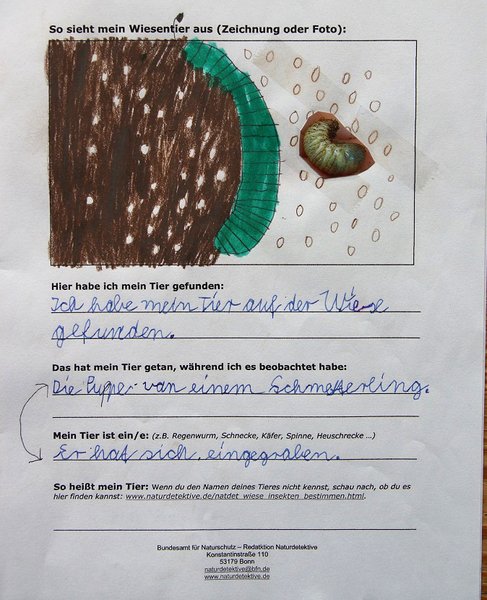 So sieht mein Wiesentier aus (Zeichnung oder Foto):
Hier habe ich mein Tier gefunden:
Ich habe mein Tier auf der Wiese
gefunden.
Das hat mein Tier getan, während ich es beobachtet habe:
Die Pupper van einem Schmetterling.
Mein Tier ist ein/e: (z.B. Regenwurm, Schnecke, Käfer, Spinne, Heuschrecke ...)
Er hat sich eingegraben.
So heißt mein Tier: Wenn du den Namen deines Tieres nicht kennst, schau nach, ob du es
hier finden kannst: www.naturdetektive.de/natdet_wiese_insekten_bestimmen.html.
Bundesamt für Naturschutz – Redaktion Naturdetektive
Konstantinstraße 110
53179 Bonn
naturdetektive@bfn.de
www.naturdetektive.de